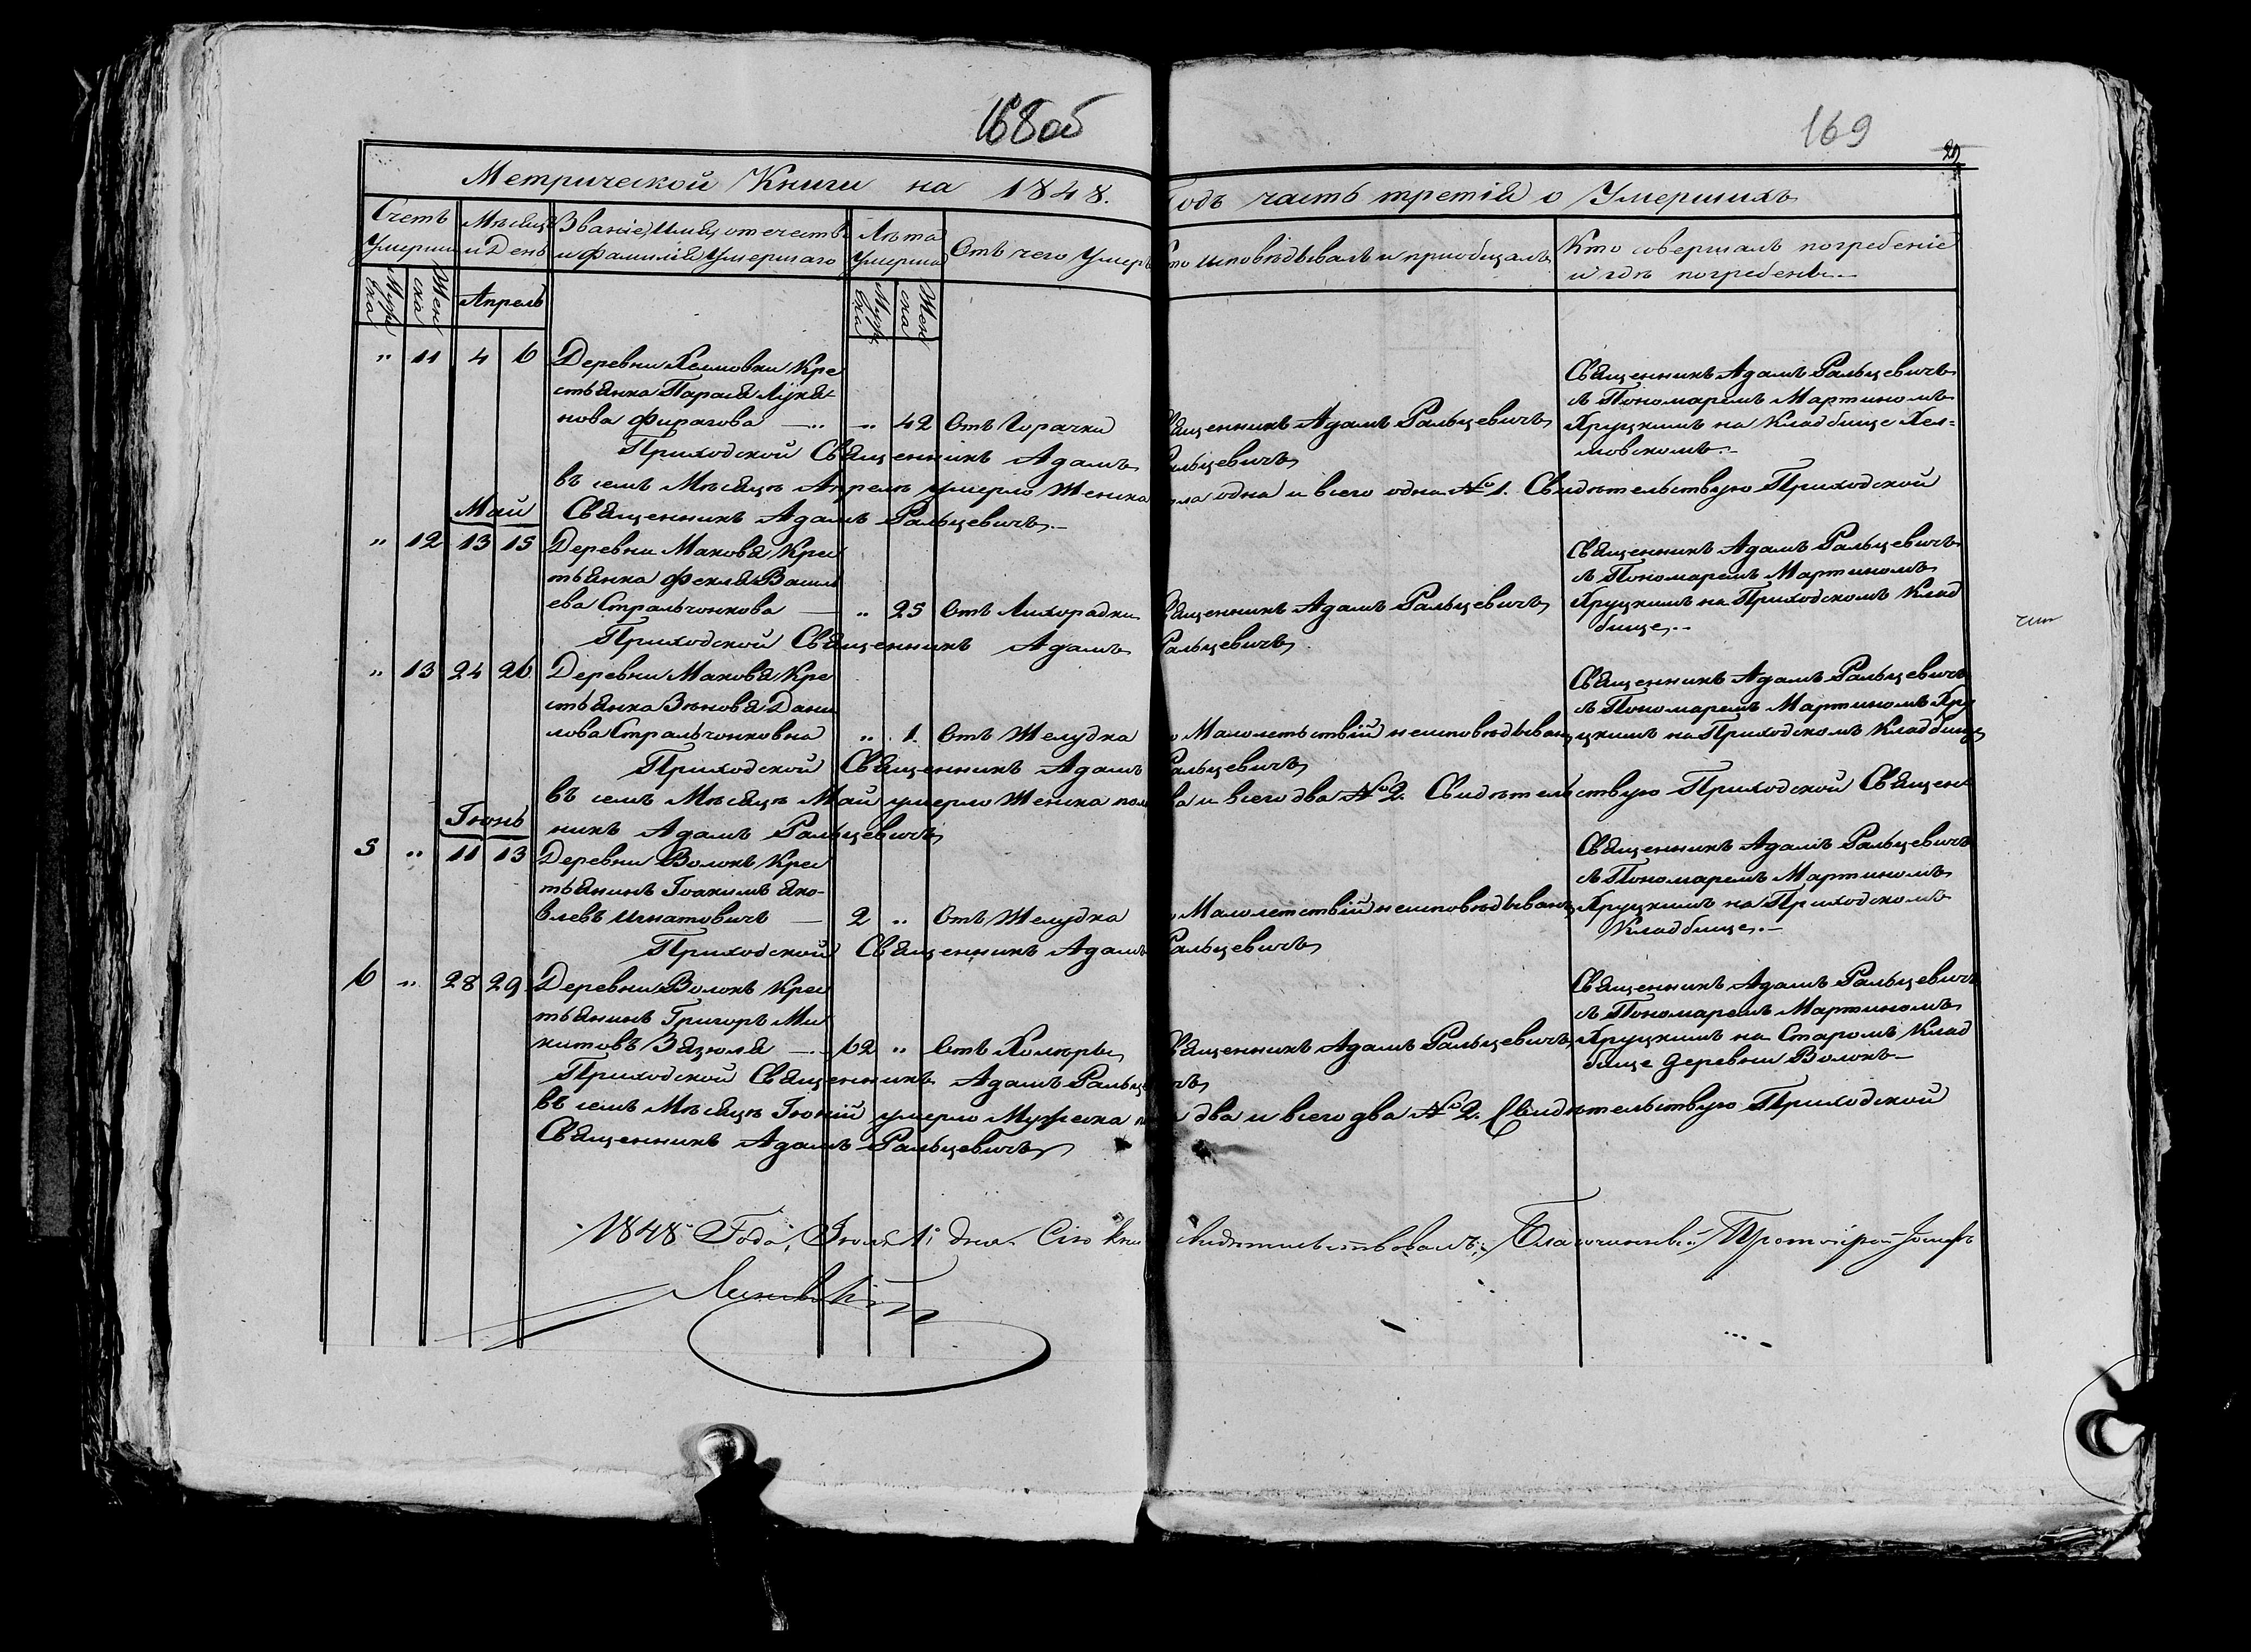 168 об
169
29
Метрической Книги на 1848.
Годъ часть третія о Умершихъ
Счетъ Умерши
Мѣсяцъ и День
Званіе, Имя, отечество и Фамилія Умершаго
Лѣта Умерша
Отъ чего Умеръ
Кто исповѣдывалъ и пріобщалъ
Кто совершалъ погребеніе и гдѣ погребенъ
Муж ска
Жен ска
Апрель
Муж ска
Жен ска
" 11 4 6 Деревни Хелмовки Кре
стьянка Парасья Лукья
нова Фирагова — " 42 Отъ Горячки
Священникъ Адамъ Ральцевичъ
Священникъ Адамъ Ральцевичъ
съ Пономаремъ Мартиномъ
Хруцкимъ на Кладбище Хел=
мовскомъ
Приходской Священникъ Адамъ Ральцевичъ
въ семъ Мѣсяцѣ Апрелѣ умерло Женска пола одна и всего одна № 1. Свидѣтельствую Приходской
Священникъ Адамъ Ральцевичъ
Май
" 12 13 15 Деревни Маковья Крес
тьянка Фекля Василь
ева Стральчонкова — " 25 Отъ Лихорадки
Священникъ Адамъ Ральцевичъ
Священникъ Адамъ Ральцевичъ
съ Пономаремъ Мартиномъ
Хруцкимъ на Приходскомъ Клад
бище
Приходской Священникъ Адамъ Ральцевичъ
" 13 24 26 Деревни Маковья Кре
стьянка Зѣновья Дани
лова Стральчонковна " 1. Отъ Желудка
по Малолетьствій неисповѣдыван
Священникъ Адамъ Ральцевичъ
съ Пономаремъ Мартиномъ Хру
цкимъ на Приходскомъ Кладбище
Приходской Священникъ Адамъ Ральцевичъ
въ семъ Мѣсяцѣ Май умерло Женска пола два и всего два № 2. Свидѣтельствую Приходской Священ
никъ Адамъ Ральцевичъ
Іюнь
5 " 11 13 Деревни Волокъ Крес
тьянинъ Іоакимъ Яко-
влевъ Игнатовичъ — 2 " Отъ Желудка
по Малолетствій неисповѣдыванъ
Священникъ Адамъ Ральцевичъ
съ Пономаремъ Мартиномъ
Хруцкимъ на Приходскомъ
Кладбище
Приходской Священникъ Адамъ Ральцевичъ
6 " 28 29 Деревни Волокъ Крес
тьянинъ Григоръ Ми
китовъ Зязюля — 62 " Отъ Холюры
Священникъ Адамъ Ральцевичъ
Священникъ Адамъ Ральцевичъ
съ Пономаремъ Мартиномъ
Хруцкимъ на Старомъ Клад
бище деревни Волокъ
Приходской Священникъ Адамъ Ральцевичъ
въ семъ Мѣсяцѣ Іюній умерло Мужеска пола два и всего два № 2. Свидѣтельствую Приходской
Священникъ Адамъ Ральцевичъ
1848 Года, Іюля 1 дня Сію Книгу свидѣтельствовалъ Благочинный Протоіерей Іосифъ